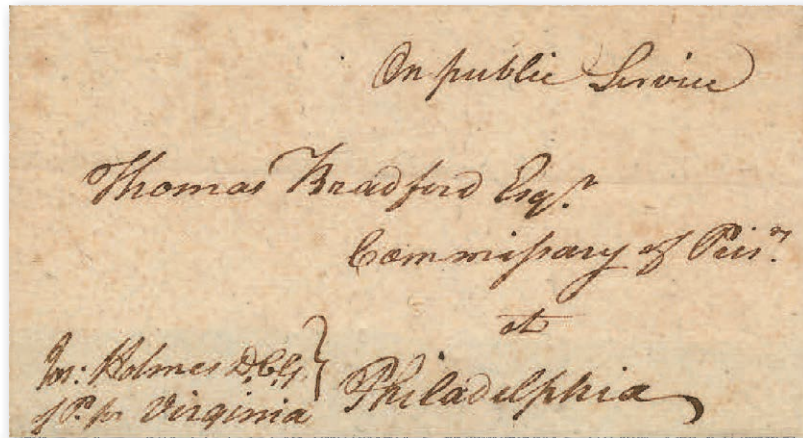 On public Service
Thomas Bradford Esqr.
Commissary of Prisrs.
at
Jos: Holmes D.C.G.
of P. for Virginia
Philadelphia